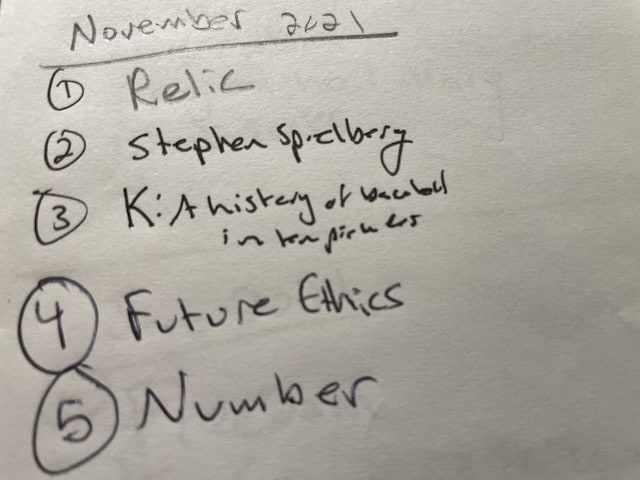 November 2021
① Relic
② Stephen Spielberg
③ K: A history of baseball
in ten pitches
④ Future Ethics
⑤ Number